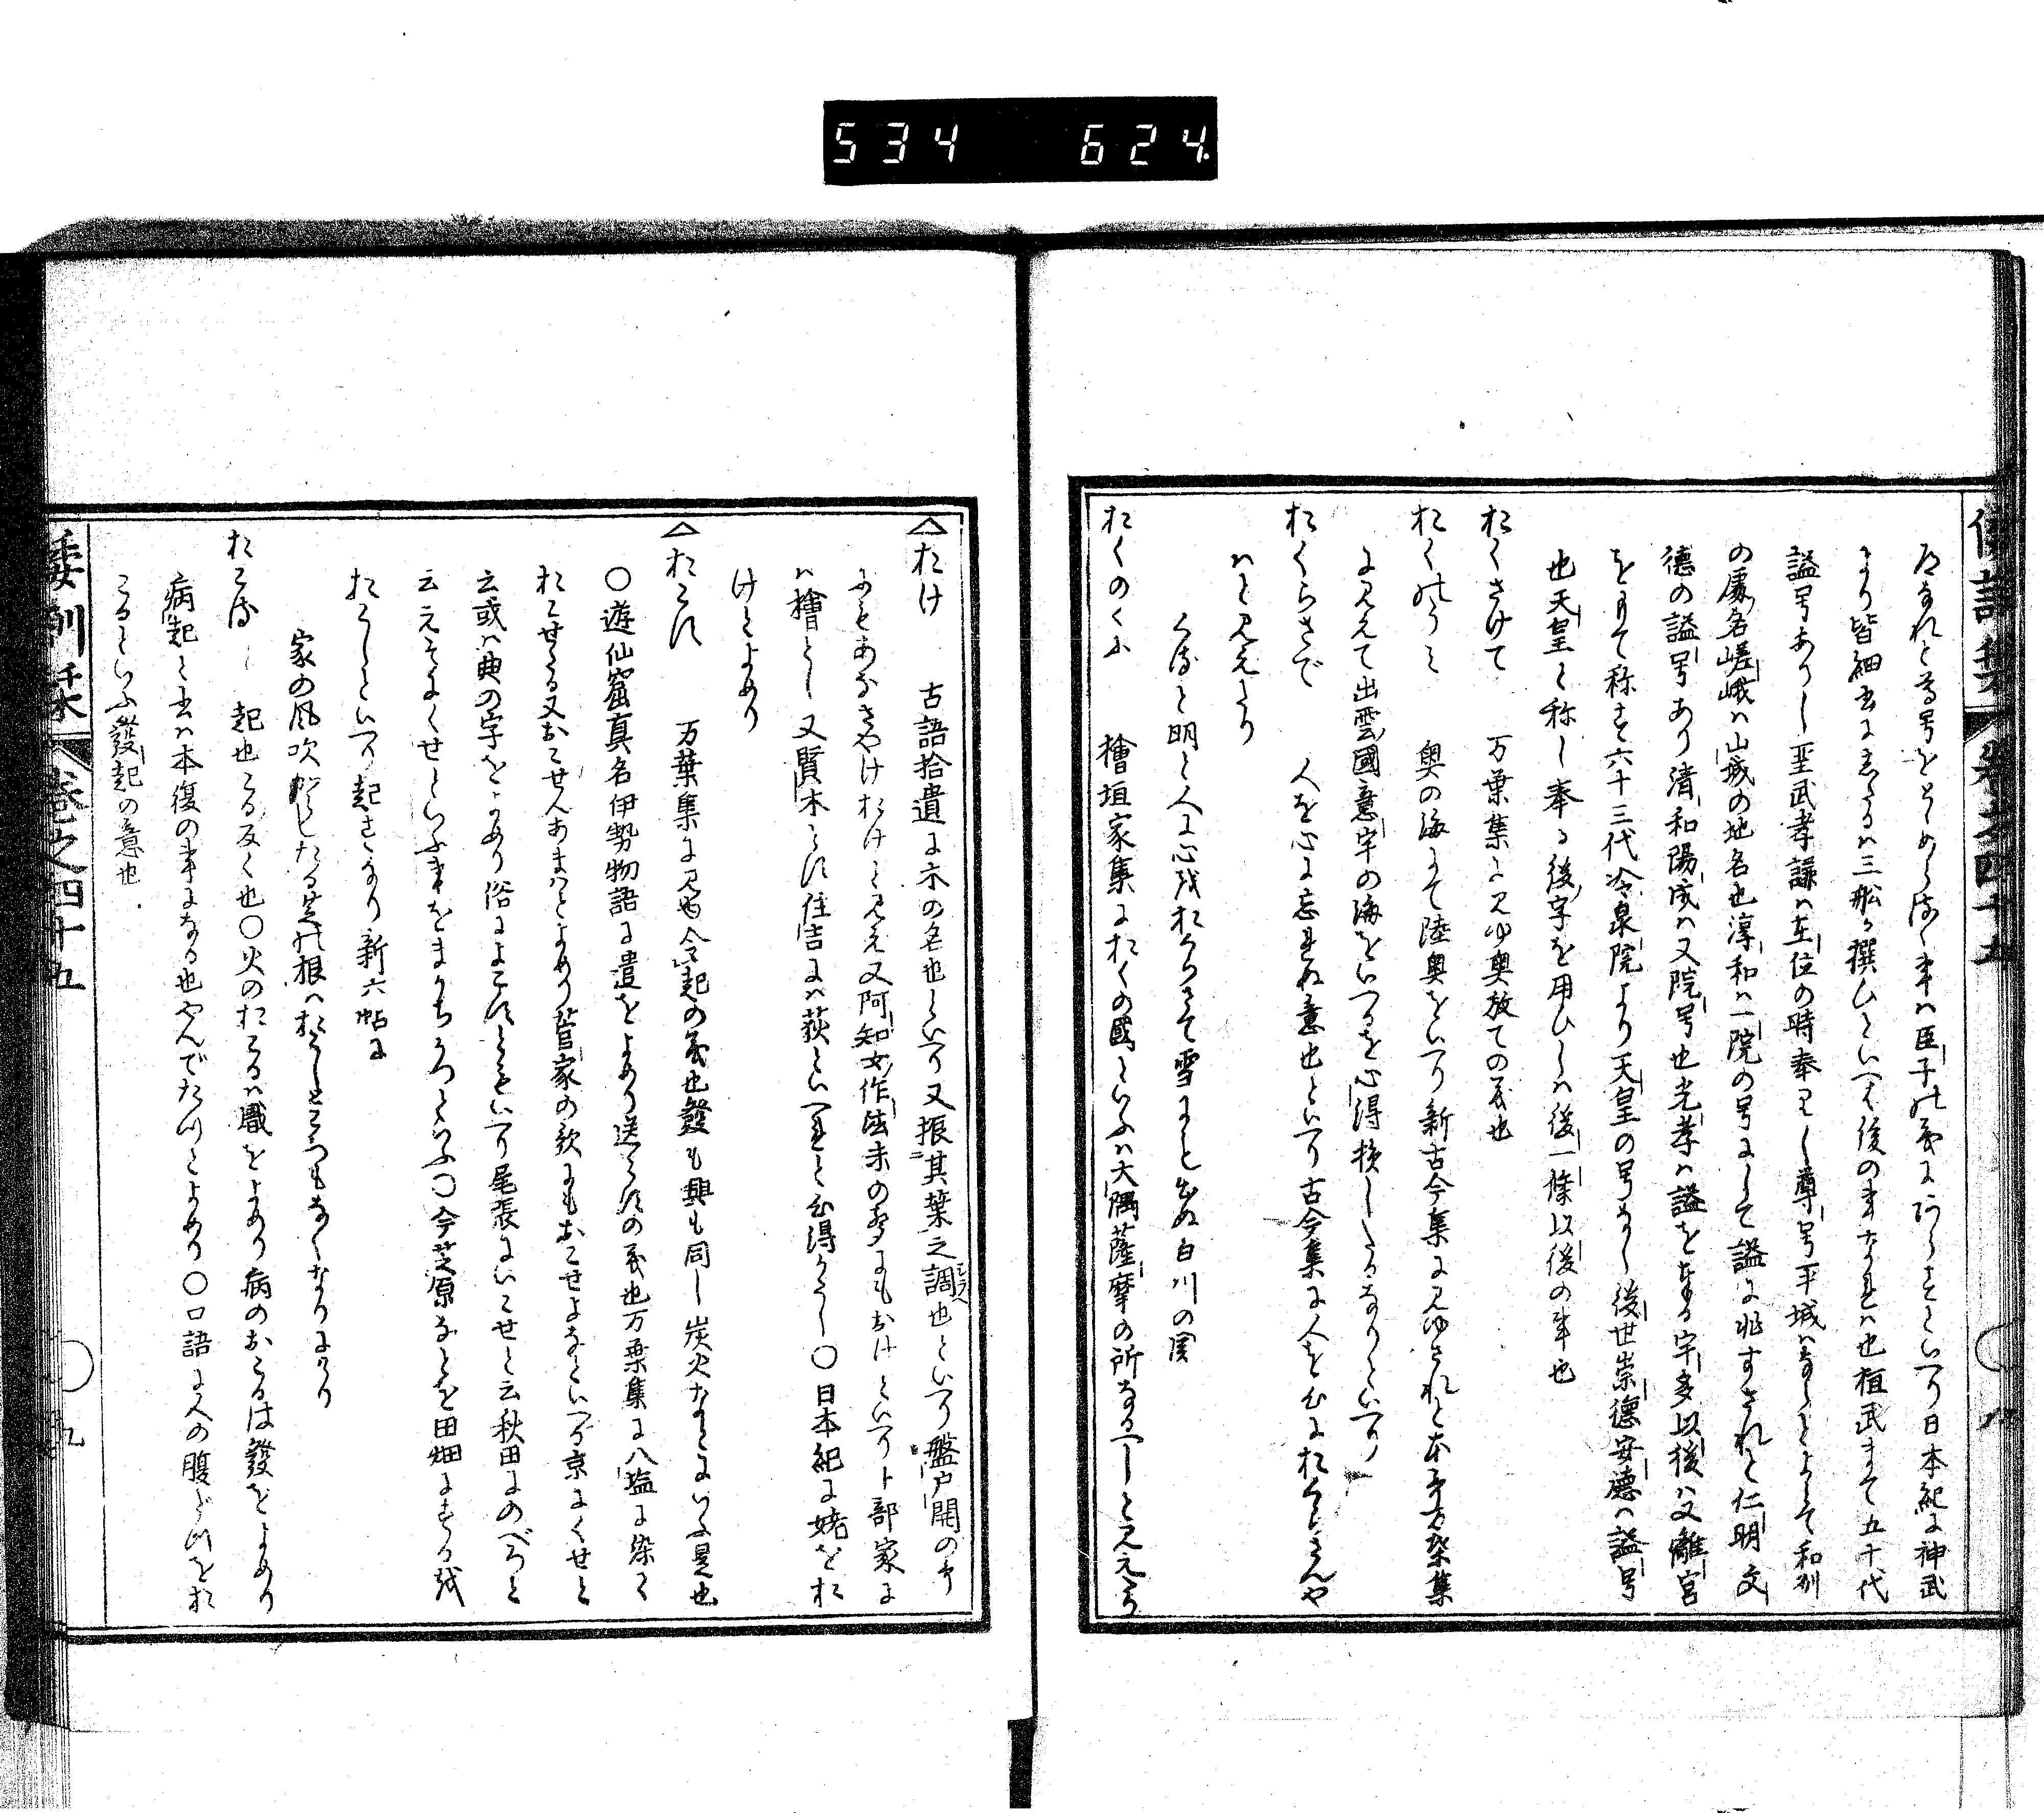 534 624
なれと尊号をとゝめらるゝ事は臣子の義にあらすといへり日本紀に神武
より皆細書にしるすは三船か撰ひといへは後の事なれは也桓武まて五十代
謚号ありし聖武孝謙は在位の時奉りし尊号平城はならとよみて和州
の処名嵯峨は山城の地名也淳和は一院の号にして謚に非すされと仁明文
徳の謚号あり清和陽成は又院号也光孝は謚をたてまつる宇多以後は又離宮
をもて称す六十三代冷泉院より天皇の号なし後世崇徳安徳は謚号
也天皇と称し奉る後字を用ひしは後一條以後の事也
おくさけて 万葉集に見ゆ奥放ての義也
おくのうみ 奥の海にて陸奥をいへり新古今集に見ゆされと本哥万葉集
に見えて出雲國意宇の海をいへるを心得損したるなりといへり
おくらさで 人を心に忘れぬ意也といへり古今集に人を心におくらさんや
はと見えたり
くると明と人に心をおくらさて雪にも出ぬ白川の関
おくのくに 檜垣家集におくの國といふは大隅薩摩の所なるへしと見えたり
△おけ 古語拾遺に木の名也といへり又振其葉之調也といへり盤戸開の時
にもあなさやけおけと見え又阿知女作法末の哥にもおけといへり卜部家に
は檜とし又賢木とす住吉には荻といへれと心得かたし○日本紀に姥をお
けとよめり
△おこす 万葉集に見ゆ令起の義也發も興も同し炭火なとにいふ是也
○遊仙窟真名伊勢物語に遣をよめり送らすの義也万葉集に八塩に染て
おこせたる又おこせんあまはとよめり菅家の歌にもおこせよなといへり京によくせと
云或は典の字をよめり俗によこすともいへり尾張にいこせと云秋田にのべろと
云えそによくせといふ事をまうちかつといふ○今芝原なとを田畑にするを
おこしといへり起さなり新六帖に
家の風吹おこしたる芝の根はおこしところもなくなりにけり
おこる 起也こる反く也○火のおこるは熾をよめり病のおこるは發をよめり
病起と書は本復の事になる也やんでたつとよめり○口語に人の腹だつをお
こるといふ發起の意也
倭訓栞 巻之四十五 九